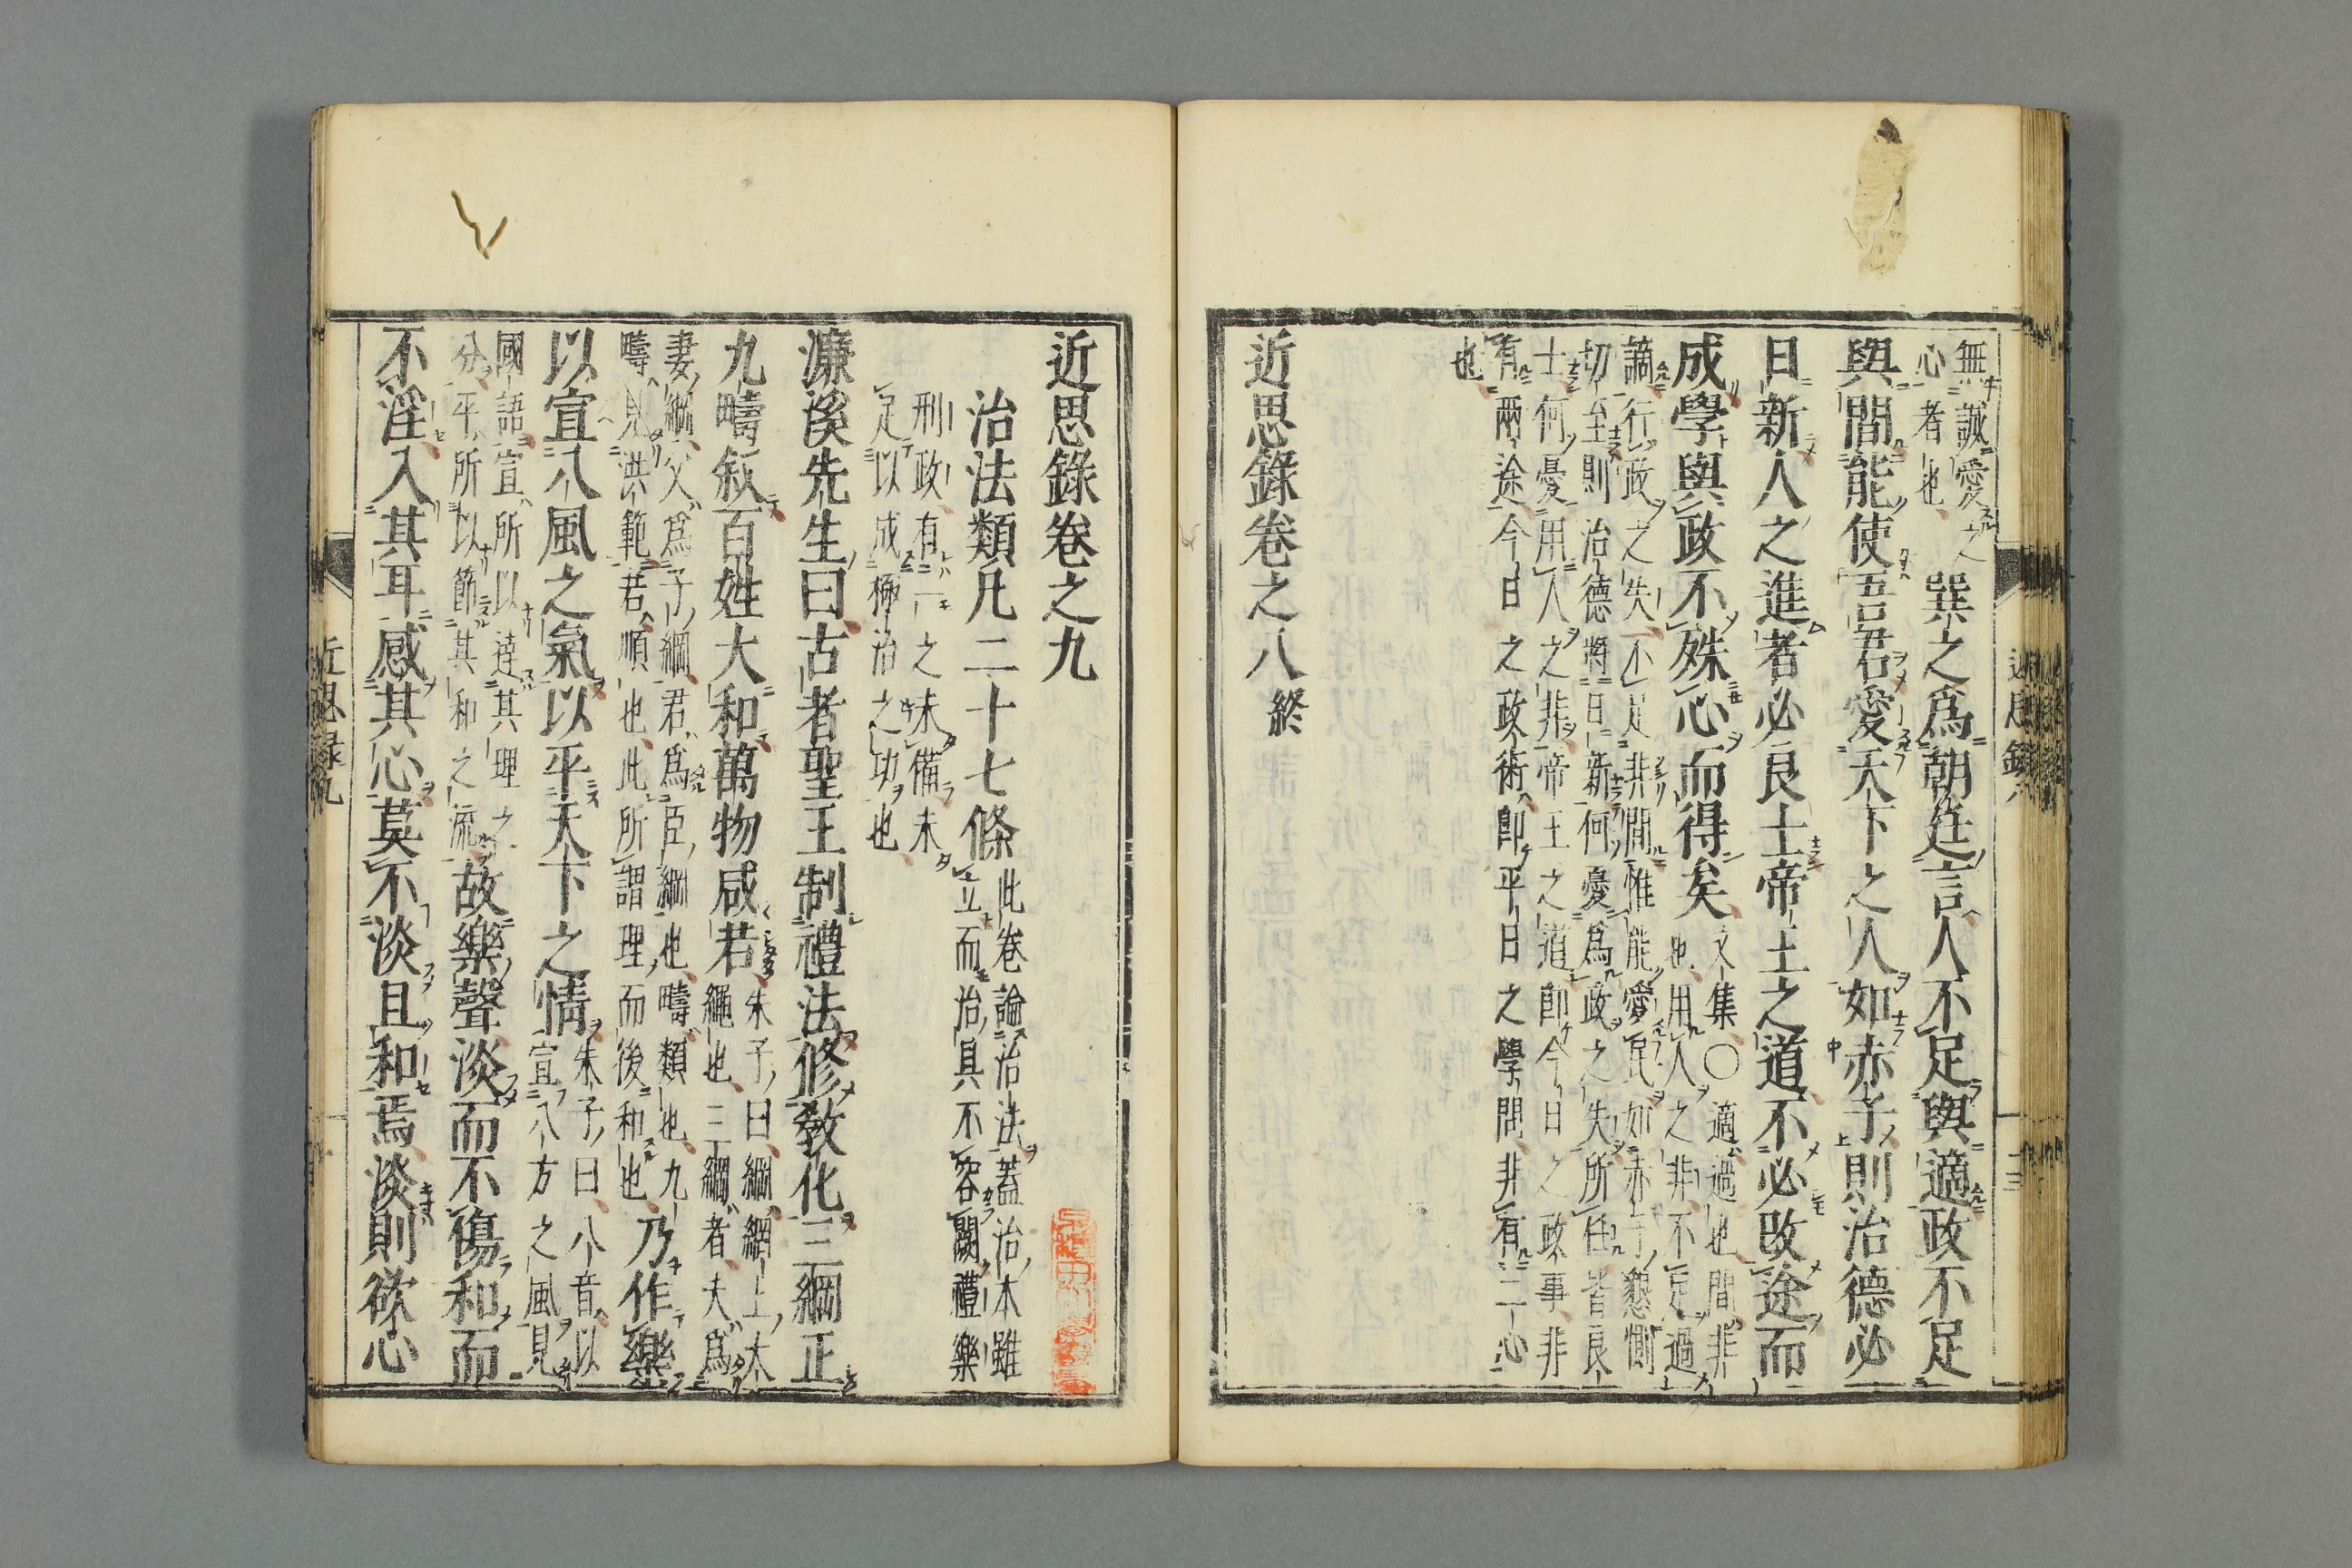 無誠愛之
心者也
巽之爲朝廷言人不足與適政不足
與間能使吾君愛天下之人如赤子則治德必
日新人之進者必良士帝王之道不必改途而
成學與政不殊心而得矣
文集〇適過也間非
也用人之非不足過
謫行政之失不足非間惟能愛民如赤子懇惻
切至則治德將日新何憂爲政之失所任皆良
士何憂用人之非帝王之道卽今日之政事非
有兩途今日之政術卽平日之學問非有二心
也
近思錄卷之八終
近思錄卷之九
治法類凡二十七條
此卷論治法蓋治本雖
立而治具不容闕禮樂
刑政有一之未備未
足以成極治之功也
濂溪先生曰古者聖王制禮法修敎化三綱正
九疇叙百姓大和萬物咸若
朱子曰綱網上大
繩也三綱者夫爲
妻綱父爲子綱君爲臣綱也疇類也九
疇見洪範若順也此所謂理而後和也
乃作樂
以宣八風之氣以平天下之情
朱子曰八音以
宣八方之風見
國語宣所以達其理之
分平所以節其和之流
故樂聲淡而不傷和而
不淫入其耳感其心莫不淡且和焉淡則欲心
近思錄九